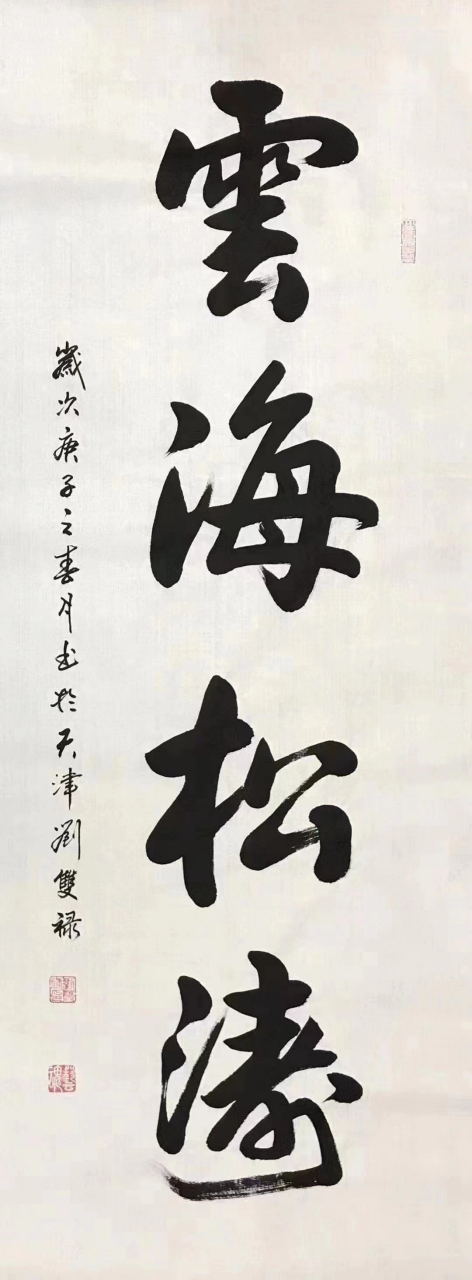 雲海松濤
歲次庚子之春月书於天津劉雙禄